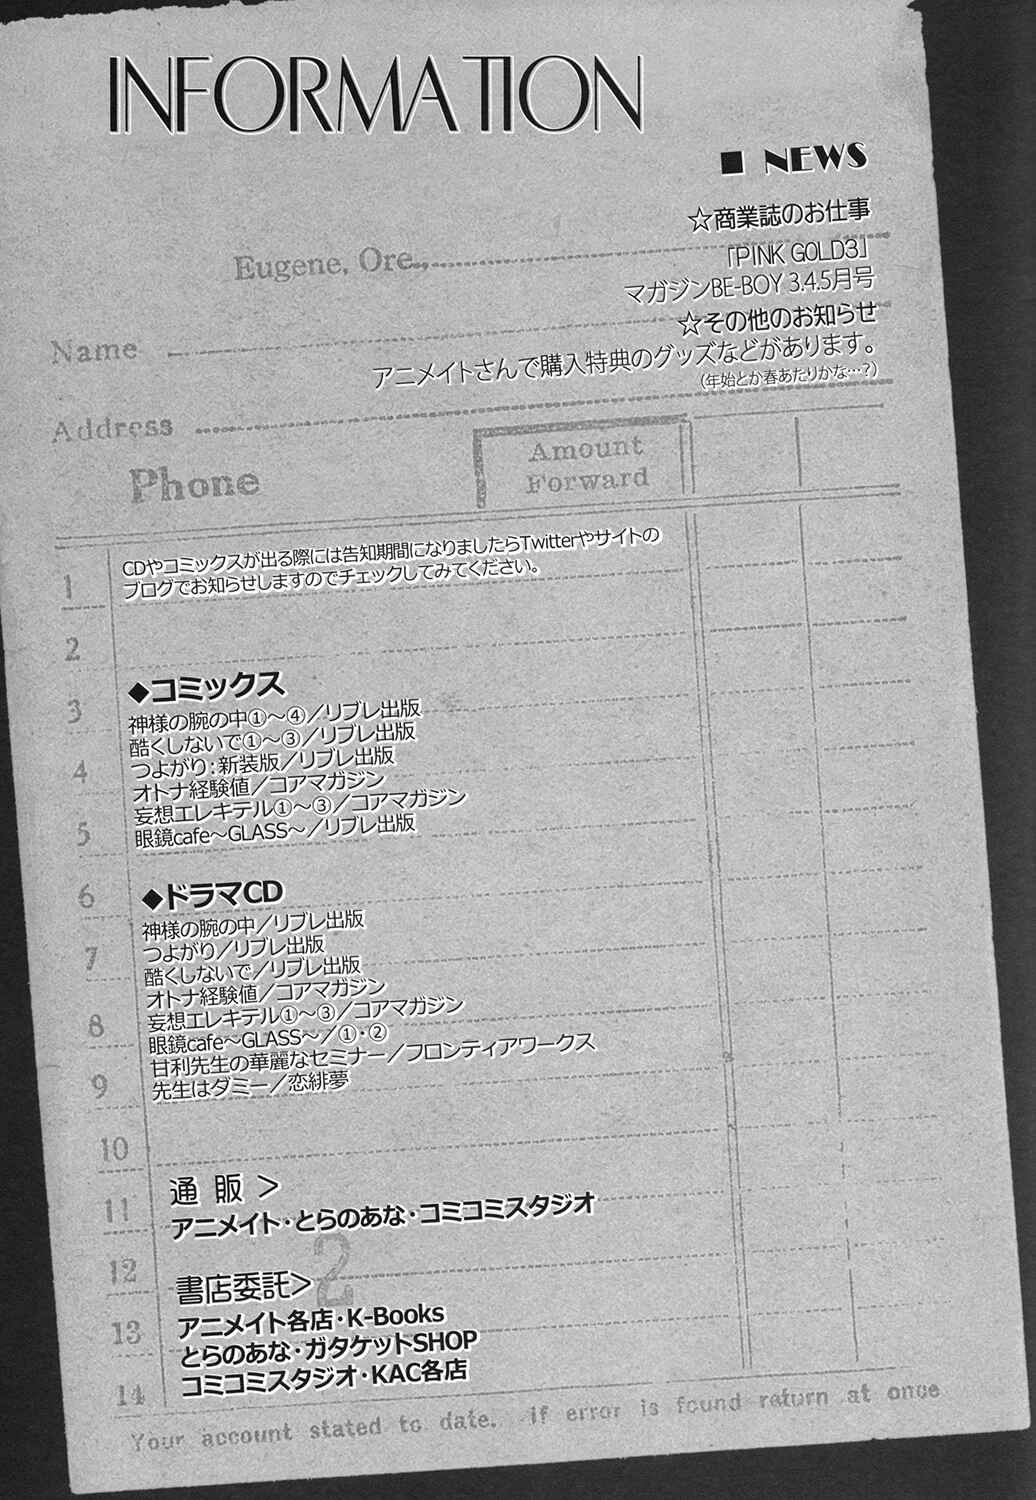 INFORMATION
■ NEWS
☆商業誌のお仕事
「PINK GOLD3」
マガジンBE-BOY 3.4.5月号
☆その他のお知らせ
アニメイトさんで購入特典のグッズなどがあります。
(年始とか春あたりかな…?)
Eugene, Ore.,
Name
Address
Phone
Amount
Forward
CDやコミックスが出る際には告知期間になりましたらTwitterやサイトの
ブログでお知らせしますのでチェックしてみてください。
1
2
3
4
5
6
7
8
9
10
11
12
13
14
◆コミックス
神様の腕の中①～④／リブレ出版
酷くしないで①～③／リブレ出版
つよがり：新装版／リブレ出版
オトナ経験値／コアマガジン
妄想エレキテル①～③／コアマガジン
眼鏡cafe～GLASS～／リブレ出版
◆ドラマCD
神様の腕の中／リブレ出版
つよがり／リブレ出版
酷くしないで／リブレ出版
オトナ経験値／コアマガジン
妄想エレキテル①～③／コアマガジン
眼鏡cafe～GLASS～／①・②
甘利先生の華麗なセミナー／フロンティアワークス
先生はダミー／恋緋夢
通 販 >
アニメイト・とらのあな・コミコミスタジオ
2
書店委託>
アニメイト各店・K-Books
とらのあな・ガタケットSHOP
コミコミスタジオ・KAC各店
Your account stated to date. if error is found return at once